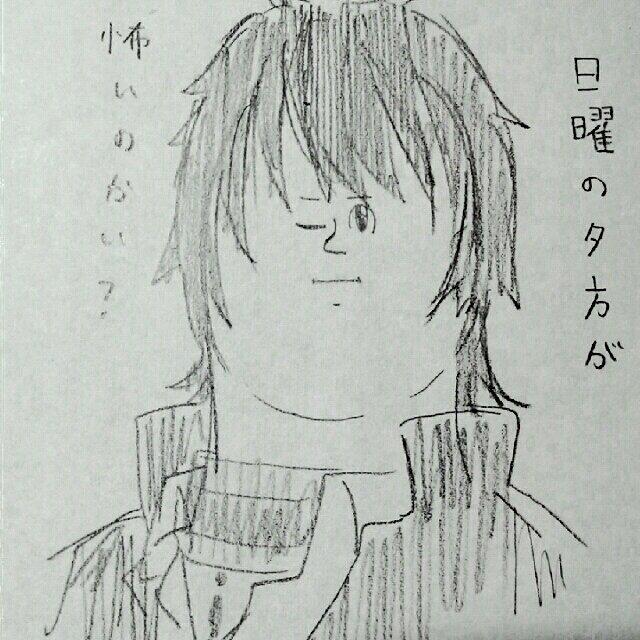 日曜の夕方が
怖いのかい？